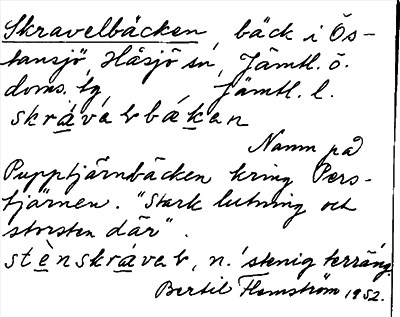 Skravelbäcken, bäck i Ös-
tansjö, Håsjö sn, Jämtl. ö.
doms. tg, Jämtl. l.
skràvàlbäkεn
Namn på
Pupptjärnbäcken kring Pers-
tjärnen. "Stark lutning och
storsten där".
stènskràvεl, n. 'stenig terräng.
Bertil Flemström 1952.